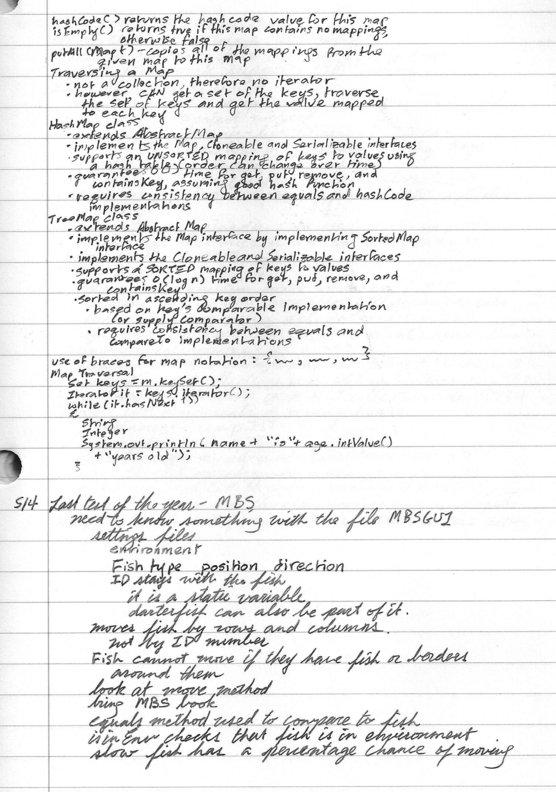 hashCode() returns the hash code value for this map
isEmpty() returns true if this map contains no mappings,
otherwise false
putAll(Map t) - copies all of the mappings from the
given map to this map
Traversing a Map
• not a collection, therefore no iterator
• however CAN get a set of the keys, traverse
the set of keys and get the value mapped
to each key
HashMap class
• extends AbstractMap
• implements the Map, Cloneable and Serializable interfaces
• supports an UNSORTED mapping of keys to values using
a hash table (order can change over time)
• guarantees O(1) time for get, put, remove, and
containsKey, assuming good hash function
• requires consistency between equals and hashCode
implementations
TreeMap class
• extends Abstract Map
• implements the Map interface by implementing SortedMap
interface
• implements the Cloneable and Serializable interfaces
• supports a SORTED mapping of keys to values
• guarantees O(log n) time for get, put, remove, and
containsKey
• sorted in ascending key order
• based on key's comparable implementation
(or supply comparator)
• requires consistency between equals and
compareTo implementations
use of braces for map notation : { , , }
Map Traversal
Set keys = m.keySet();
Iterator it = keys.iterator();
while (it.hasNext())
{
String
Integer
System.out.println( name + "is" + age.intValue()
+ "years old");
}
5/4 Last test of the year - MBS
need to know something with the file MBSGUI
settings files
environment
Fish type position direction
ID stays with the fish
it is a static variable
darterfish can also be part of it.
moves fish by rows and columns.
not by ID number
Fish cannot move if they have fish or borders
around them
look at move method
bring MBS book
equals method used to compare to fish
isinEnv checks that fish is in environment
slow fish has a percentage chance of moving